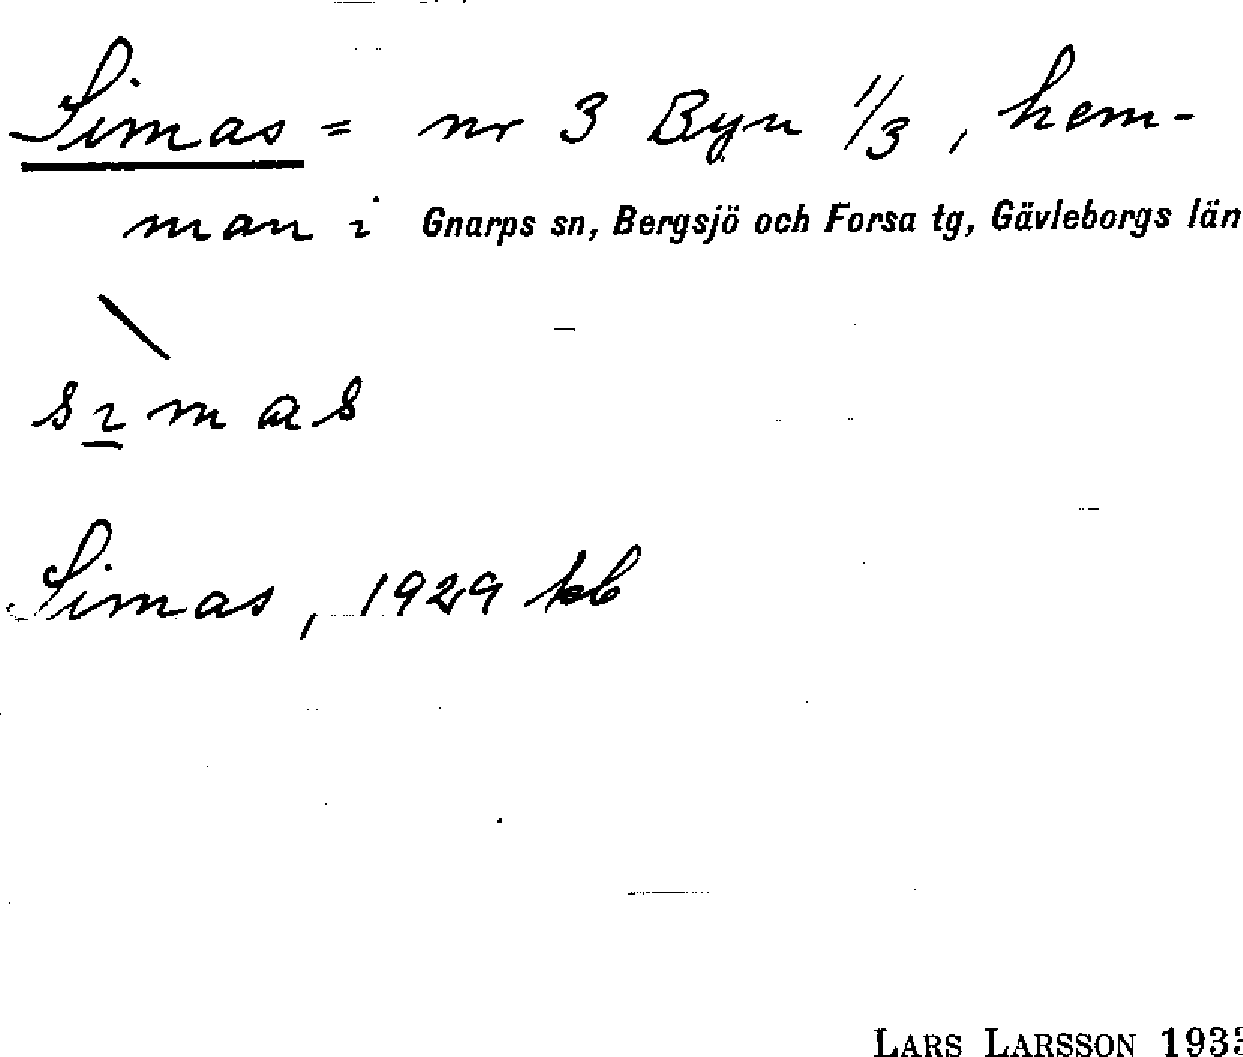 Simas = nr 3 Byn 1/3, hem-
man i Gnarps sn, Bergsjö och Forsa tg, Gävleborgs län
sımas
Simas, 1929 kb
LARS LARSSON 193